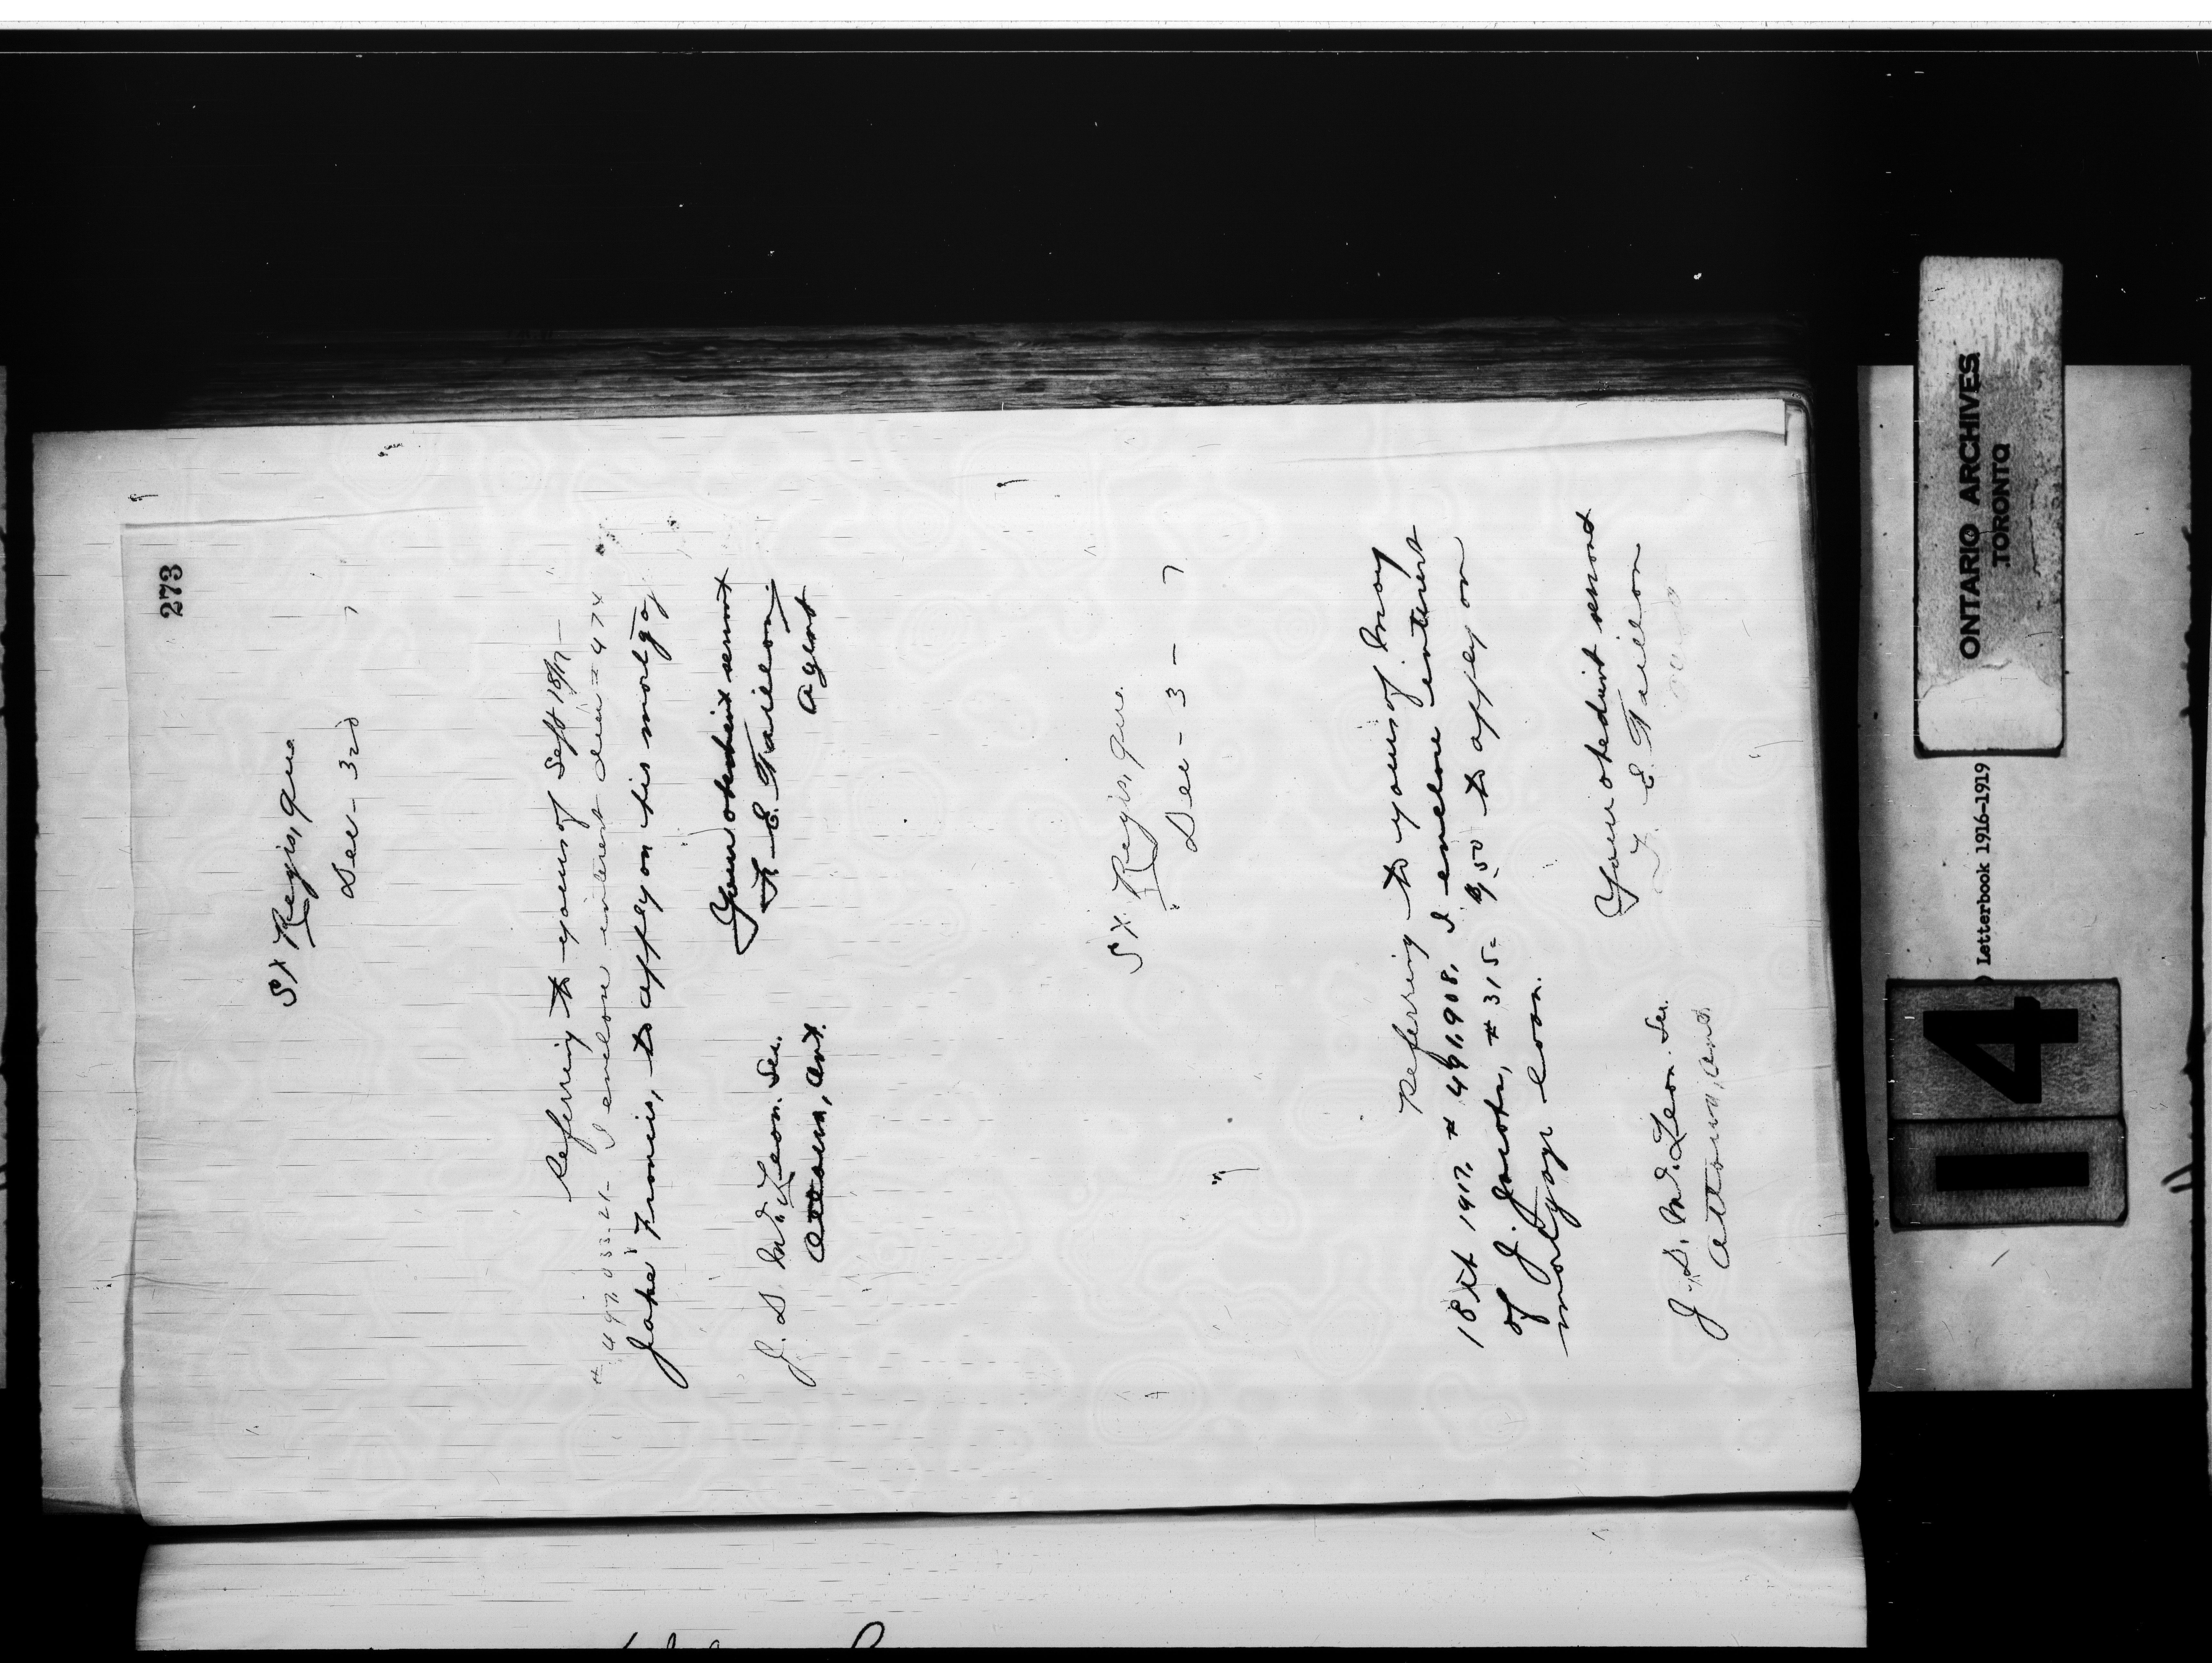 273
St Regis, Que.
Dec - 3rd 7
Referring to yours of Sept 18/17 -
# 497.033.21 - I enclose interest due = 474
Jake Francis, to apply on his mortgag
Your obedient servant
F. E. Taillon
Agent
J. D. McLean. Sec.
Ottawa, Ont.
St. Regis, Que.
Dec - 3 - 7
Referring to yours of May
18th 1917. # 491.908, I enclose interest
of J. Jacobs, # 315 = 9/50 to apply on
mortgage loan.
Your obedient servant
F. E. Taillon
J. D. McLean. Sec.
Ottawa, Ont.
ONTARIO ARCHIVES
TORONTO
Letterbook 1916-1919
14